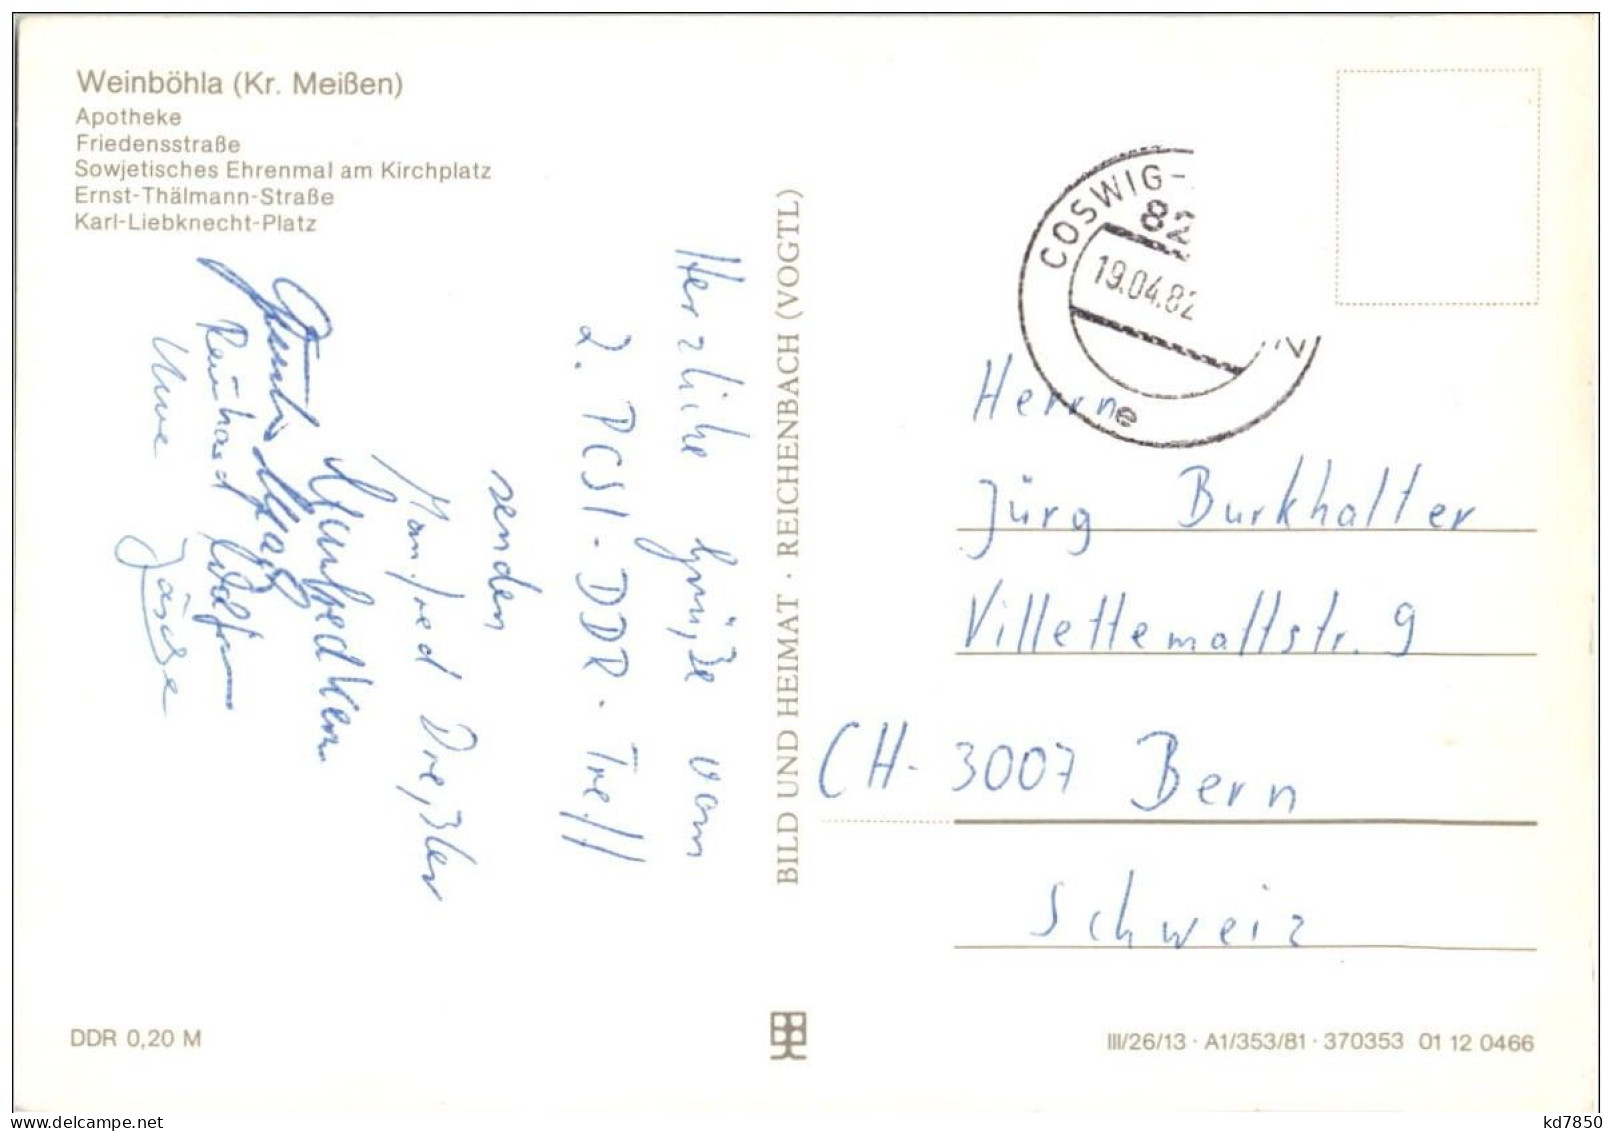 Weinböhla (Kr. Meißen)
Apotheke
Friedensstraße
Sowjetisches Ehrenmal am Kirchplatz
Ernst-Thälmann-Straße
Karl-Liebknecht-Platz
Herzliche Grüße vom
2. PCSI-DDR-Treff
senden
Manfred Dreßler
Reinhard
Uwe Jäschke
BILD UND HEIMAT · REICHENBACH (VOGTL)
COSWIG-
82
19.04.82
e
Herrn
Jürg Burkhalter
Villettemattstr. 9
CH-3007 Bern
Schweiz
DDR 0,20 M
III/26/13 · A1/353/81 · 370353 01 12 0466
www.delcampe.net
kd7850